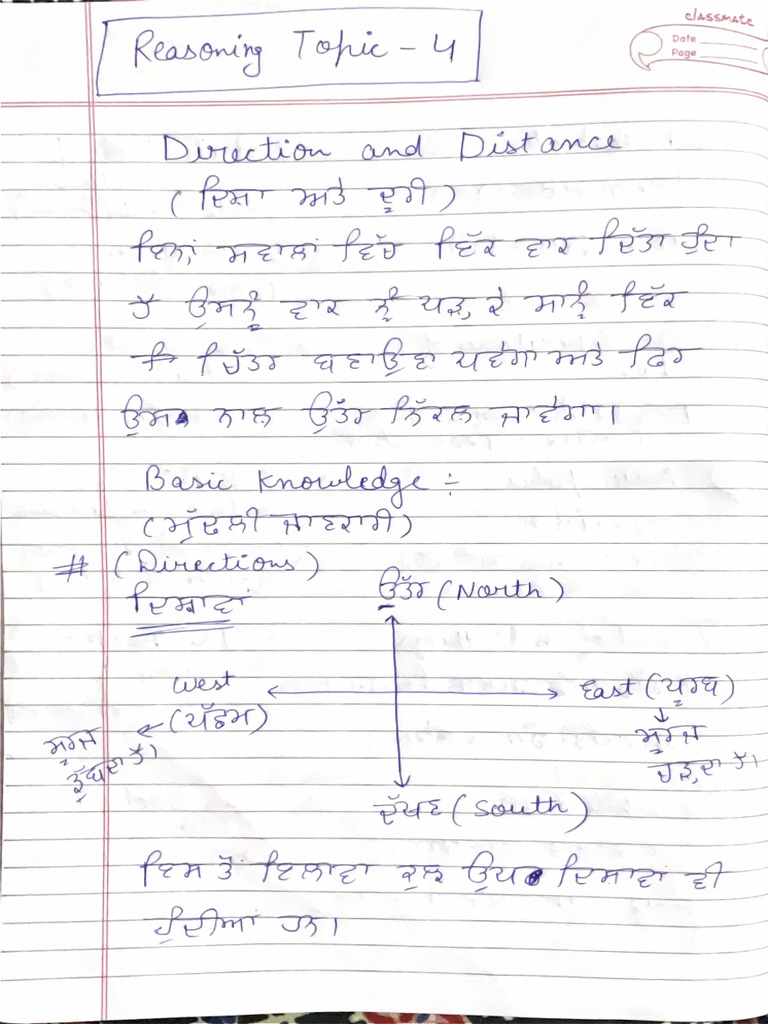 classmate
Date
Page
Reasoning Topic - 4
Direction and Distance
(ਦਿਸ਼ਾ ਅਤੇ ਦੂਰੀ)
ਇਨਾਂ ਸਵਾਲਾਂ ਵਿੱਚ ਵਿੱਕ ਵਾਕ ਦਿੱਤਾ ਹੁੰਦਾ
ਹੈ ਉਸਨੂੰ ਵਾਕ ਨੂੰ ਪੜ੍ਹ ਕੇ ਸਾਨੂੰ ਵਿੱਕ
ਚਿੱਤਰ ਬਣਾਉਣਾ ਪਵੇਗਾ ਅਤੇ ਫਿਰ
ਉਸ ਨਾਲ ਉੱਤਰ ਨਿੱਕਲ ਜਾਵੇਗਾ।
Basic Knowledge ÷
(ਮੁੱਢਲੀ ਜਾਣਕਾਰੀ)
# (Directions)
ਦਿਸ਼ਾਵਾਂ
ਉੱਤਰ (North)
West
(ਪੱਛਮ)
East (ਪੂਰਬ)
ਸੂਰਜ
ਡੁੱਬਦਾ ਹੈ।
ਸੂਰਜ
ਚੜ੍ਹਦਾ ਹੈ।
ਦੱਖਣ (South)
ਇਸ ਤੋਂ ਇਲਾਵਾ ਕੁਝ ਉਪ ਦਿਸਾਵਾਂ ਵੀ
ਹੁੰਦੀਆਂ ਹਨ।